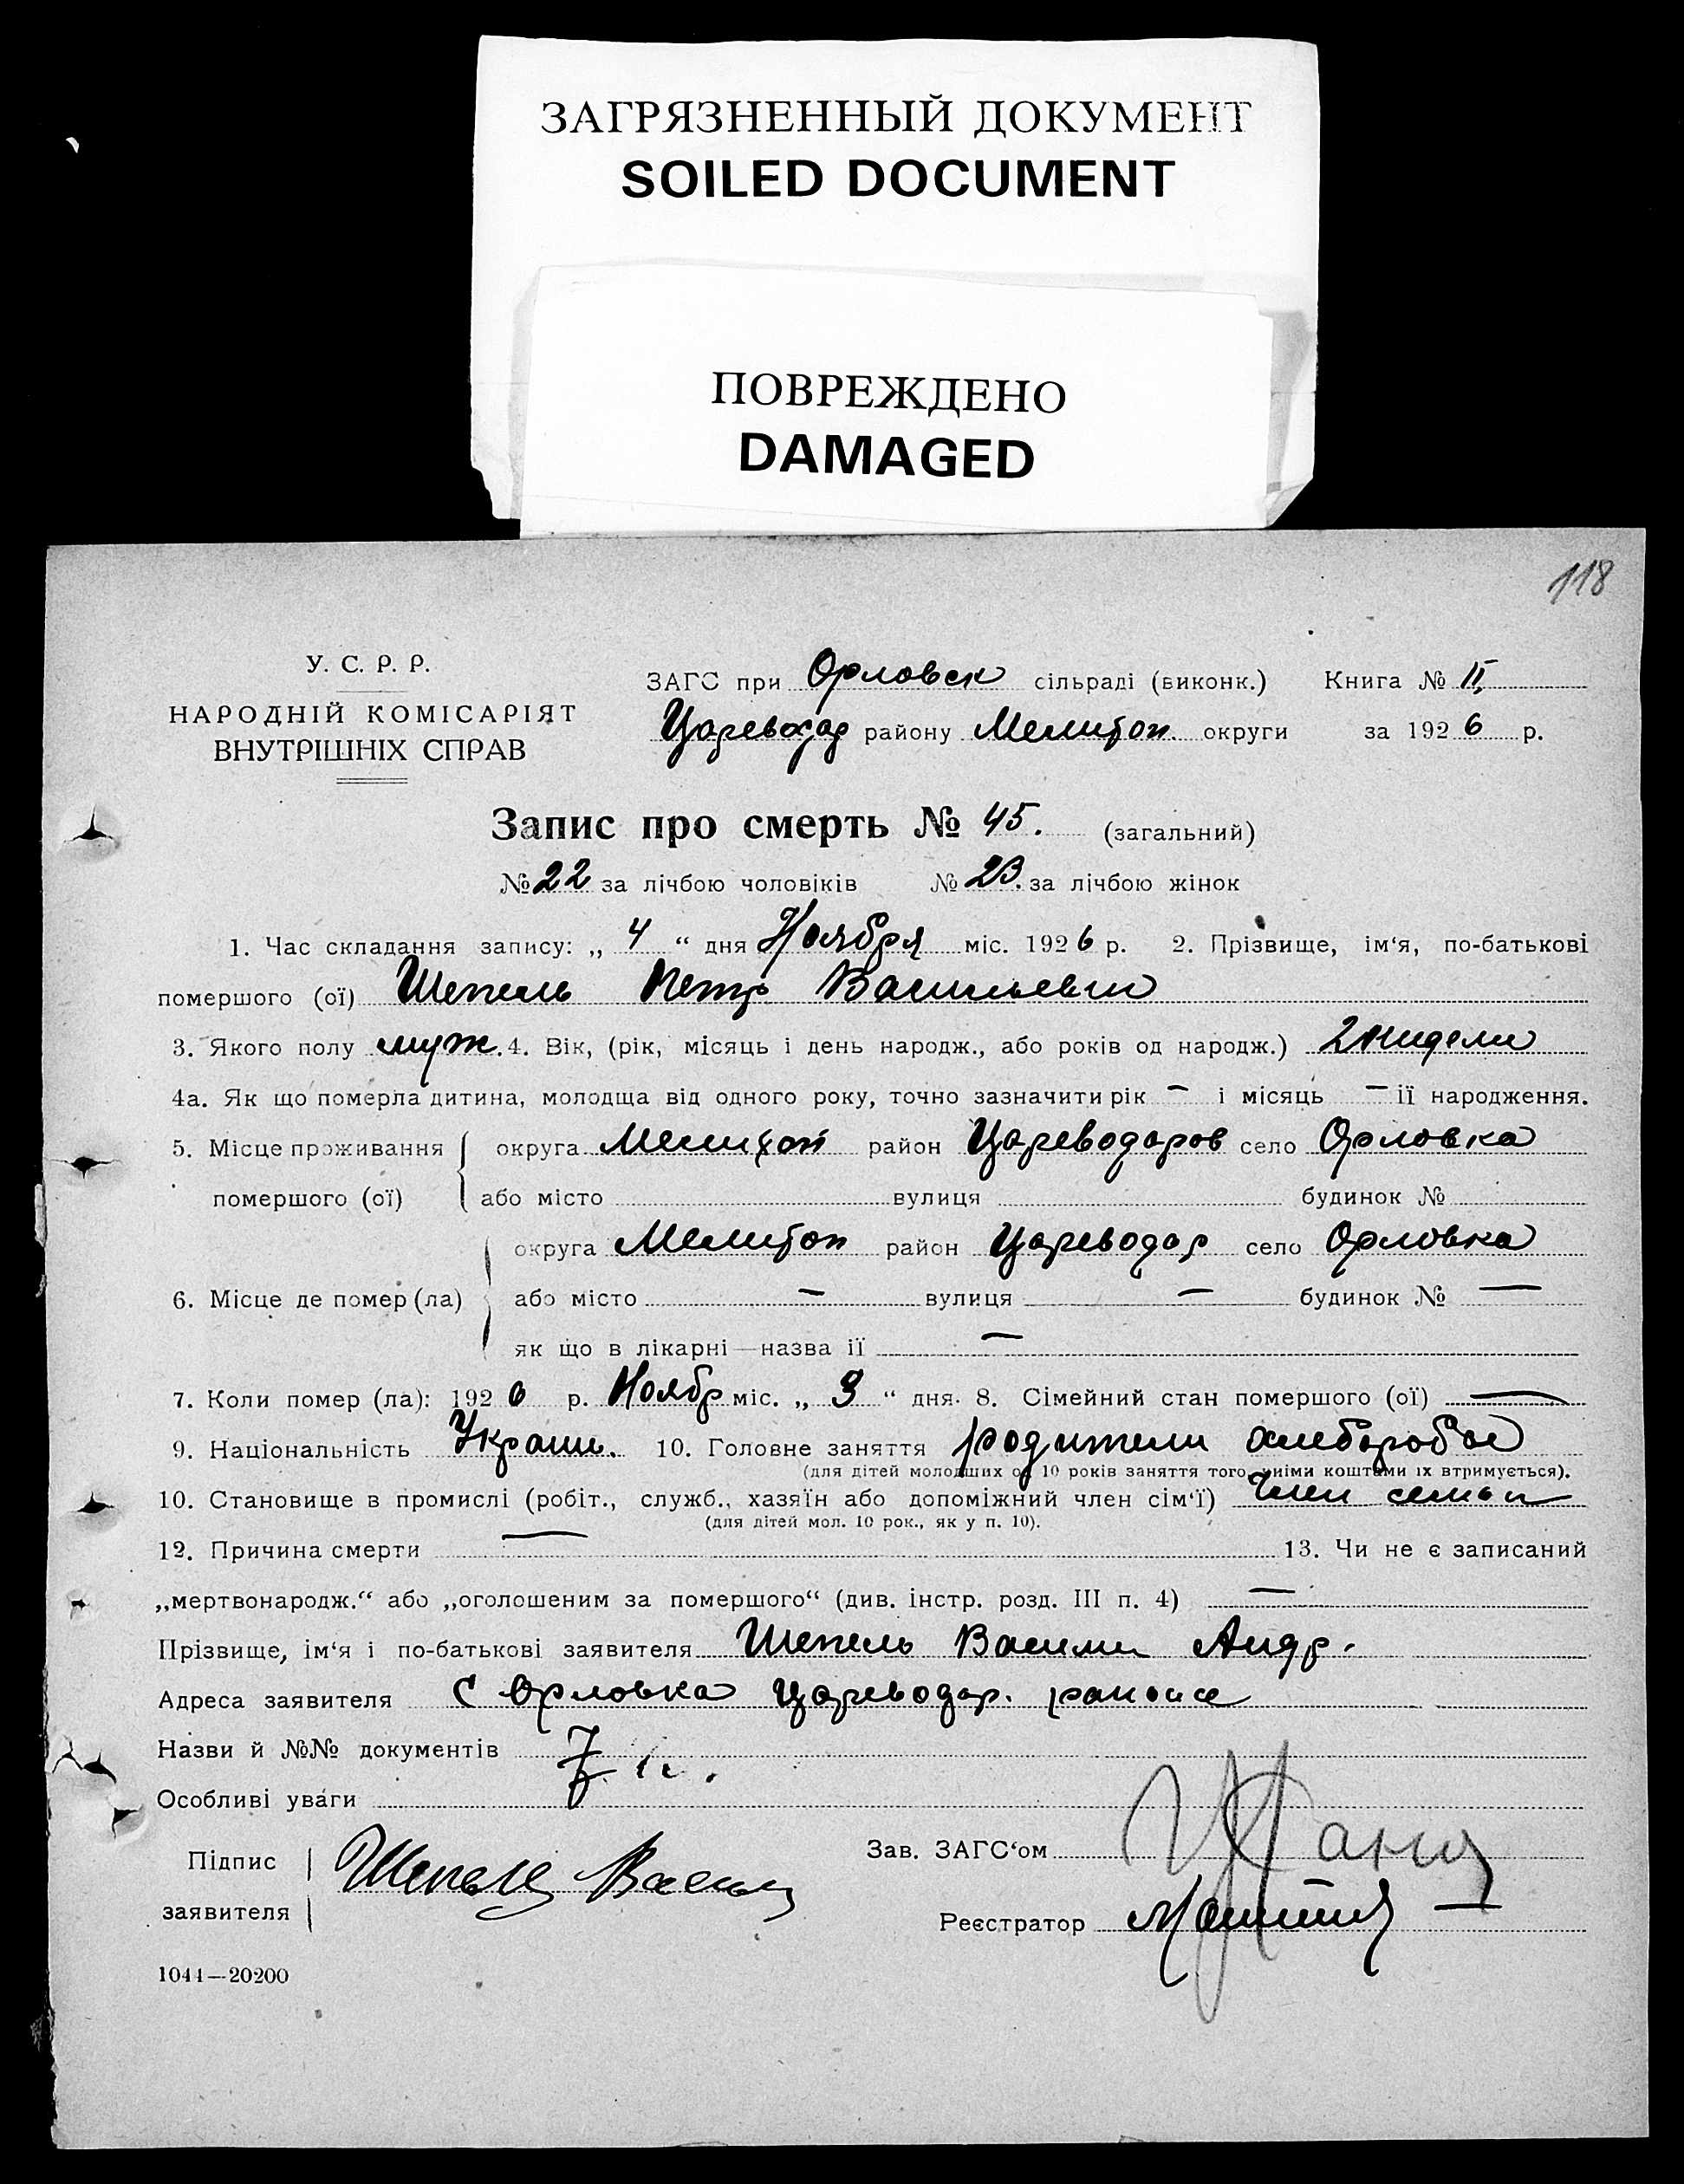 ЗАГРЯЗНЕННЫЙ ДОКУМЕНТ
SOILED DOCUMENT
ПОВРЕЖДЕНО
DAMAGED
118
У. С. Р. Р.
НАРОДНІЙ КОМІСАРІЯТ
ВНУТРІШНІХ СПРАВ
ЗАГС при Орловск сільраді (виконк.) Книга № II
Царевод району Мелитоп. округи за 1926 р.
Запис про смерть № 45. (загальний)
№ 22 за лічбою чоловіків № 23. за лічбою жінок
1. Час складання запису: „ 4 “ дня Ноября міс. 1926 р. 2. Прізвище, ім‘я, по-батькові
помершого (ої) Шепель Петр Васильевич
3. Якого полу муж. 4. Вік, (рік, місяць і день народж., або років од народж.) 2 нидели
4а. Як що померла дитина, молодща від одного року, точно зазначити рік — і місяць — її народження.
5. Місце проживання помершого (ої) округа Мелитоп район Цареводаров село Орловка
або місто вулиця будинок №
6. Місце де помер (ла) округа Мелитоп район Цареводар село Орловка
або місто — вулиця — будинок № —
як що в лікарні — назва її —
7. Коли помер (ла): 1926 р. Ноябр міс. „ 3 “ дня. 8. Сімейний стан помершого (ої) —
9. Національність Украин. 10. Головне заняття родители хлеборобы
(для дітей молодших од 10 років заняття того, чиїми коштами їх втримується).
10. Становище в промислі (робіт., служб., хазяїн або допоміжний член сім‘ї) Член семьи
(для дітей мол. 10 рок., як у п. 10).
12. Причина смерти — 13. Чи не є записаний
„мертвонародж.“ або „оголошеним за помершого“ (див. інстр. розд. III п. 4) —
Прізвище, ім‘я і по-батькові заявителя Шепель Васили Андр.
Адреса заявителя с Орловка Цареводар. района
Назви й №№ документів
Особливі уваги
Підпис заявителя Шепель Васил
Зав. ЗАГС‘ом
Реєстратор
1044—20200